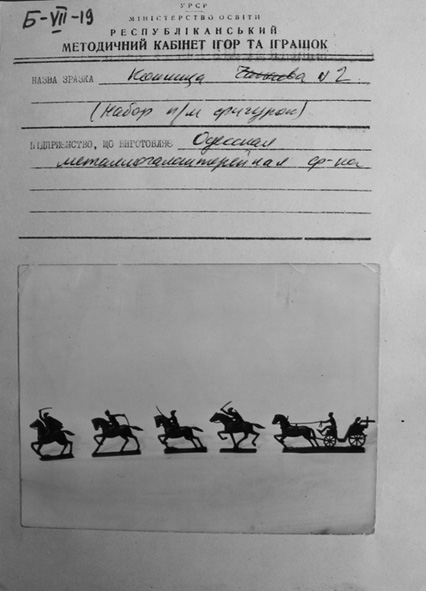 Б-VII-19
УРСР
МІНІСТЕРСТВО ОСВІТИ
РЕСПУБЛІКАНСЬКИЙ
МЕТОДИЧНИЙ КАБІНЕТ ІГОР ТА ІГРАШОК
НАЗВА ЗРАЗКА Конница №2
(Набор п/м фигурок)
ПІДПРИЄМСТВО, ЩО ВИГОТОВЛЯЄ Одесская
металлогалантерейная ф-ка